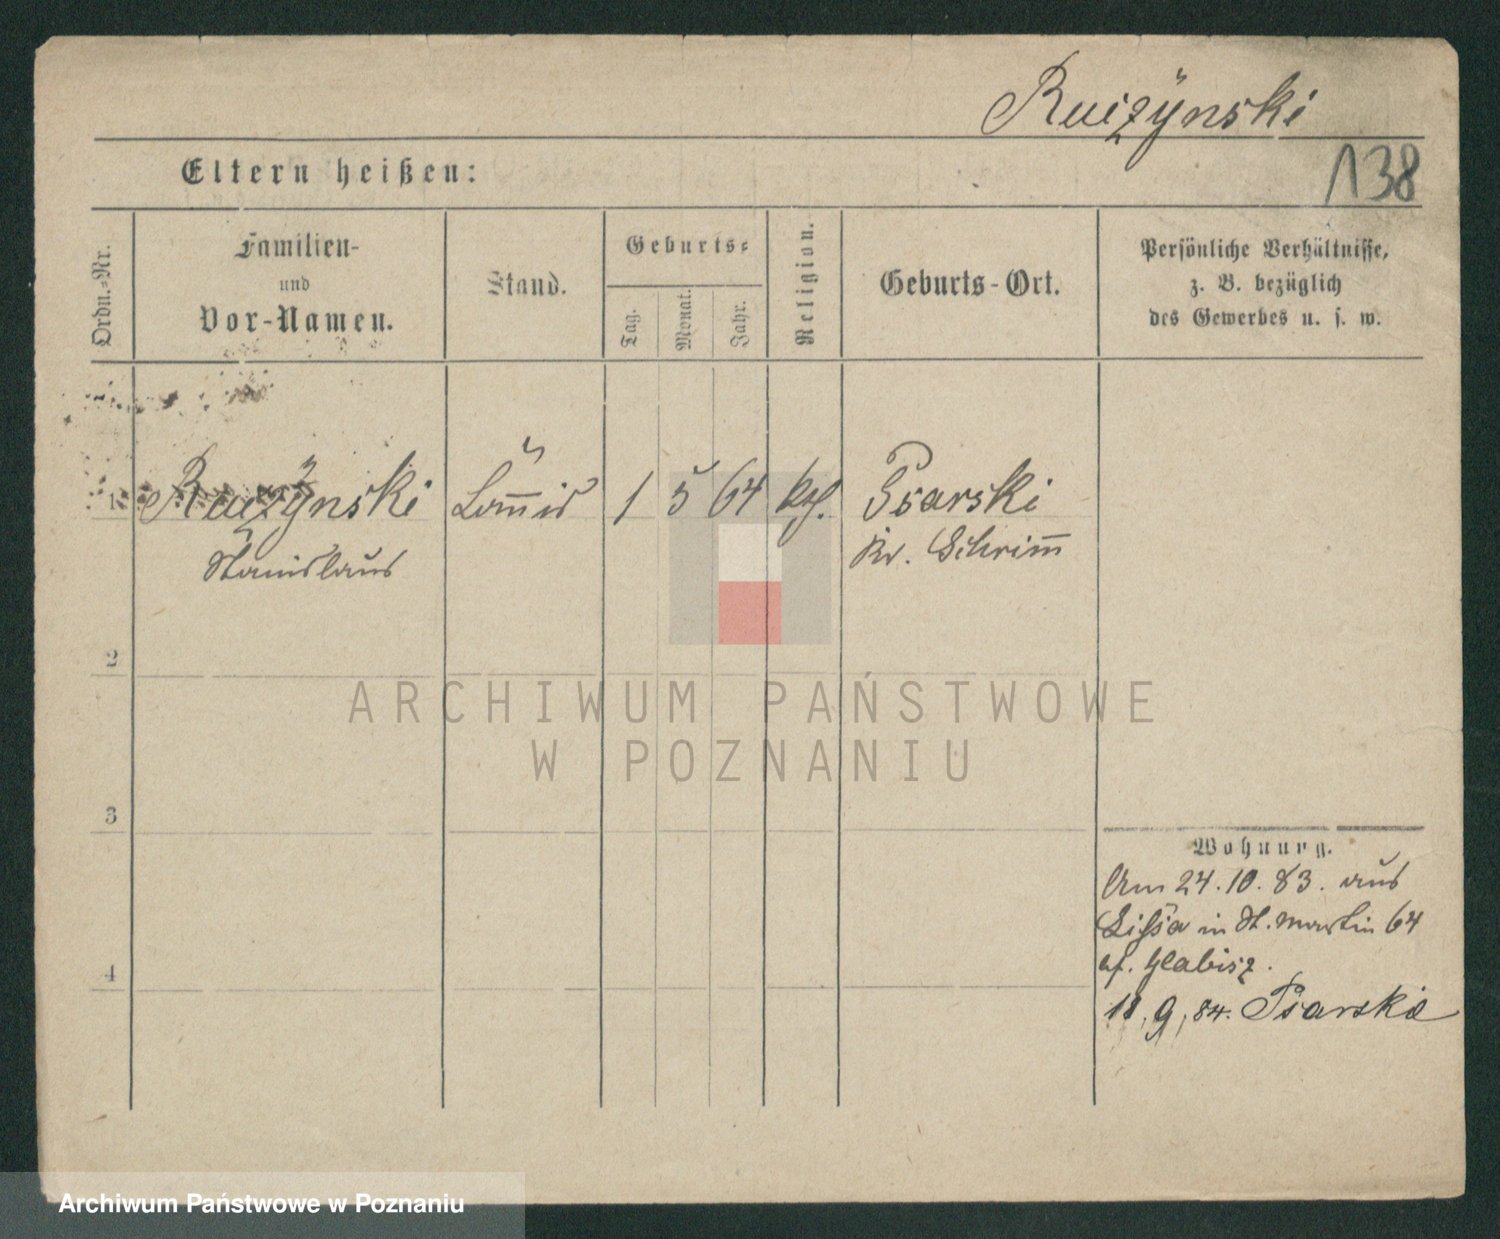 Ruizÿnski
138
Eltern heißen:
Ordn.-Nr.
Familien-
und
Vor-Namen.
Stand.
Geburts-
Tag.
Monat.
Jahr.
Religion.
Geburts-Ort.
Persönliche Verhältnisse,
z. B. bezüglich
des Gewerbes u. s. w.
1 Ruizÿnski Com̅is 1 5 64 kth. Psarski
Stanislaus Kr. Schrim̅
2
ARCHIWUM PAŃSTWOWE
W POZNANIU
3
Wohnung.
Am 24. 10. 83. aus
Lissa in St. Martin 64
bf. Glabisz.
18. 9. 84. Psarskie
4
Archiwum Państwowe w Poznaniu